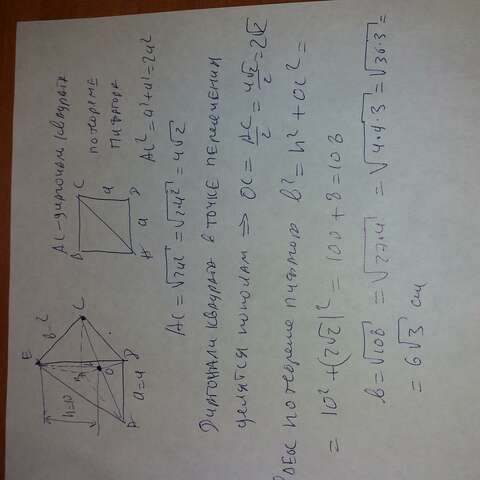 E
b-?
C
h=10
O
D
a=4
A
B
C
a
A
a
D
AC-диагональ квадрата
по теореме
Пифагора
AC² = a² + a² = 2a²
AC = √2a² = √2·4² = 4√2
Диагонали квадрата в точке пересечения
делятся пополам ⇒ OC = AC/2 = 4√2/2 = 2√2
по теореме Пифагора b² = h² + OC² =
= 10² + (2√2)² = 100 + 8 = 108
b = √108 = √27·4 = √4·9·3 = √36·3 =
= 6√3 см